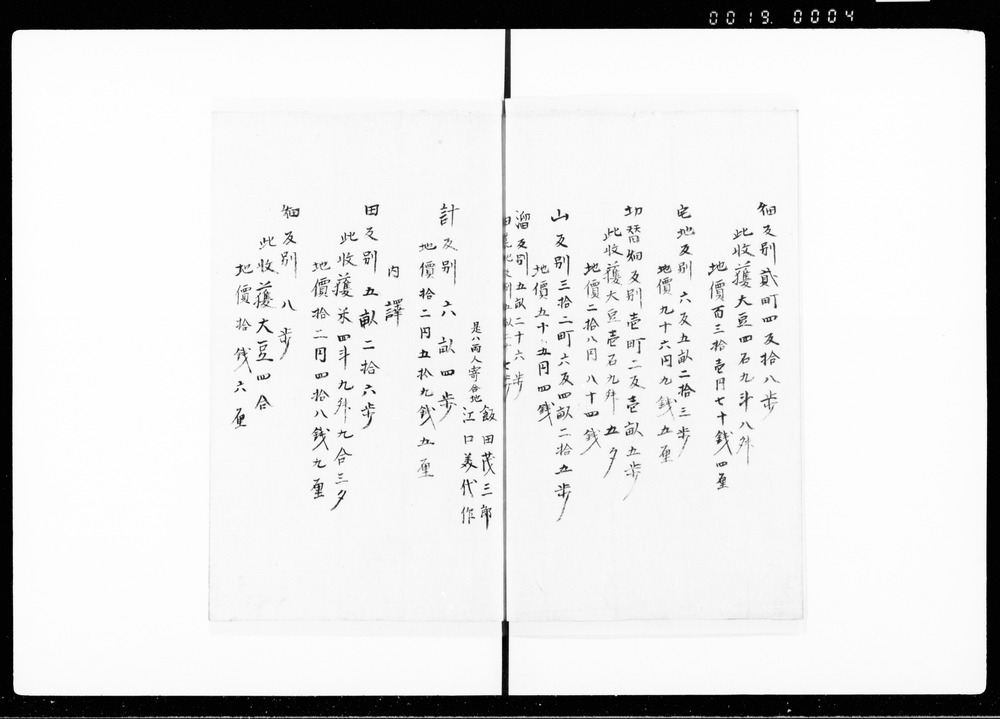 0019. 0004
畑反別貳町四反拾八歩
此收獲大豆四石九斗八舛
地價百三拾壱円七十錢四厘
宅地反別六反五畝二拾三歩
地價九十六円九錢五厘
切替畑反別壱町二反壱畝五歩
此收獲大豆壱石九舛五夕
地價二拾八円八十四錢
山反別三拾二町六反四畝二拾五歩
地價五十五円四錢
溜反別五畝二十六歩
是ハ両人寄合地
飯田茂三郎
江口美代作
計反別六畝四歩
地價拾二円五拾九錢五厘
内譯
田反別五畝二拾六歩
此收獲米四斗九舛九合三夕
地價拾二円四拾八錢九厘
畑反別八歩
此收獲大豆四合
地價拾錢六厘